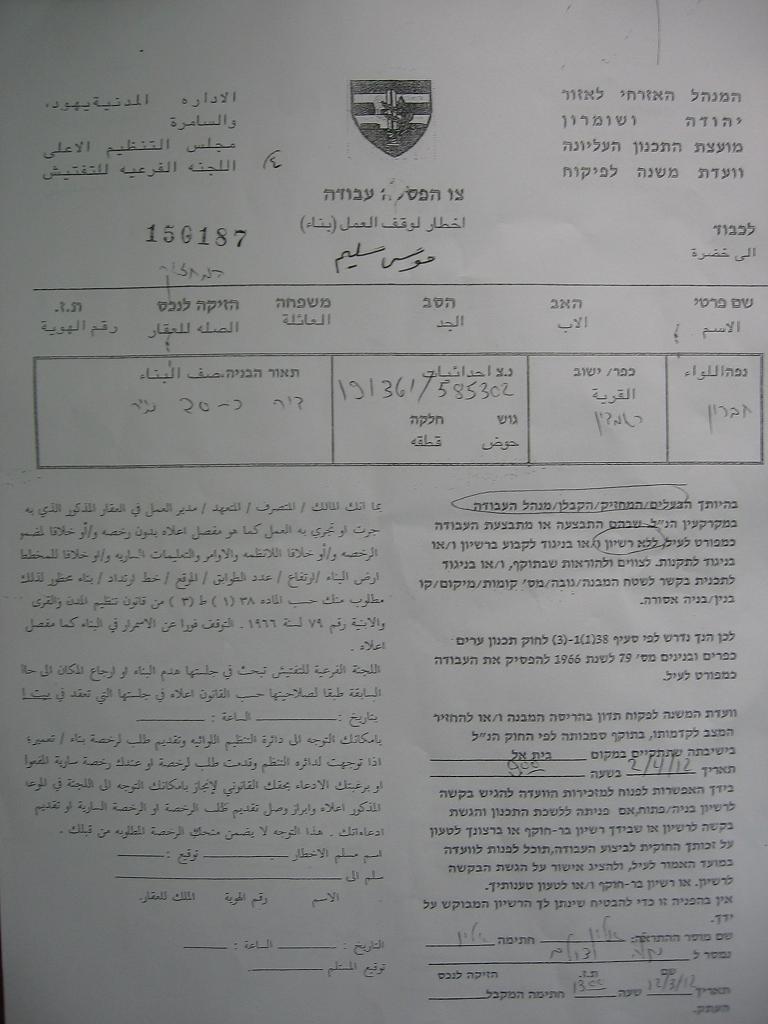 המנהל האזרחי לאזור
יהודה ושומרון
מועצת התכנון העליונה
וועדת משנה לפיקוח
الاداره المدنية يهود،
والسامرة
مجلس التنظيم الاعلى
اللجنه الفرعيه للتفتيش
צו הפסקת עבודה
اخطار لوقف العمل (بناء)
לכבוד
الى حضرة
موسى سليم
150187
המחזיק
שם פרטי האב הסב משפחה הזיקה לנכס ת.ז.
الاسم الاب الجد العائلة الصله للعقار رقم الهوية
נפה اللواء
חברון
כפר/ ישוב
القرية
רמדין
נ.צ احداثيات
191361/585302
גוש חלקה
حوض قطقه
תאור הבניה،صف البناء
דיר כ-20 מ"ר
בהיותך הבעלים/המחזיק/הקבלן/מנהל העבודה
במקרקעין הנ"ל שבהם התבצעה או מתבצעת העבודה
כמפורט לעיל, ללא רשיון ו/או בניגוד לקבוע ברשיון ו/או
בניגוד לתקנות. לצווים ולהוראות שבתוקף, ו/או בניגוד
לתכנית בקשר לשטח המבנה/גובה/מס' קומות/מיקום/קו
בנין/בניה אסורה.
לכן הנך נדרש לפי סעיף 38(1)(1-3) לחוק תכנון ערים
כפרים ובנינים מס' 79 לשנת 1966 להפסיק את העבודה
כמפורט לעיל.
וועדת המשנה לפקוח תדון בהריסה המבנה ו/או להחזיר
המצב לקדמותו, בתוקף סמכותה לפי החוק הנ"ל
בישיבתה שתתקיים במקום בית אל
תאריך 2/4/12 בשעה 900
בידך האפשרות לפנות למזכירות הוועדה להגיש בקשה
לרשיון בניה/פתוח,אם פניתה ללשכת התכנון והגשת
בקשה לרשיון או שבידך רשיון בר-תוקף או ברצונך לטעון
על זכותך החוקית לביצוע העבודה,תוכל לפנות לוועדה
במועד האמור לעיל, ולהציג אישור על הגשת הבקשה
לרשיון. או רשיון בר-תוקף ו/או לטעון טענותיך.
אין בהפניה זו כדי להבטיח שינתן לך הרשיון המבוקש על
ידך.
שם מוסר ההתראה: חתימה
נמסר ל
שם ת.ז. הזיקה לנכס
תאריך 12/3/12 שעה 1300 חתימת המקבל
העתק.
بما انك المالك / المتصرف / المتعهد / مدير العمل في العقار المذكور الذي به
جرت او تجري به العمل كما هو مفصل اعلاه بدون رخصه و/أو خلافا لمضمو
الرخصه و/أو خلافا اللانظمه والاوامر والتعليمات الساريه و/او خلافا للمخطط
ارض البناء /ارتفاع / عدد الطوابق / الموقع / خط ارتداد / بناء محظور لذلك
مطلوب منك حسب الماده ٣٨ (١ ) ط (٣ ) من قانون تنظيم المدن والقرى
والابنية رقم ٧٩ لسنة ١٩٦٦ . التوقف فورا عن الاسمرار في البناء كما مفصل
اعلاه .
اللجنة الفرعية للتفتيش تبحث في جلستها هدم البناء او ارجاع المكان الى حالا
السابقة طبقا لصلاحيتها حسب القانون اعلاه في جلستها التي تعقد في بيت ا
بتاريخ : الساعة :
بامكانك التوجه الى دائرة التنظيم اللوائيه وتقديم طلب لرخصة بناء / تعمير؛
اذا توجهت لدائره التنظم وقدمت طلب لرخصة او عندك رخصة سارية المفعوا
او برغبتك الادعاء بحقك القانوني لإنجاز بامكانك التوجه الى اللجنة في الموعا
المذكور اعلاه وابراز وصل تقديم طلب الرخصة او الرخصة السارية او تقديم
ادعاءاتك . هذا التوجه لا يضمن منحك الرخصة المطلوبه من قبلك .
اسم مسلم الاخطار توقيع :
سلم الى
الاسم رقم الهوية الملك للعقار.
التاريخ : الساعة :
توقيع المستلم